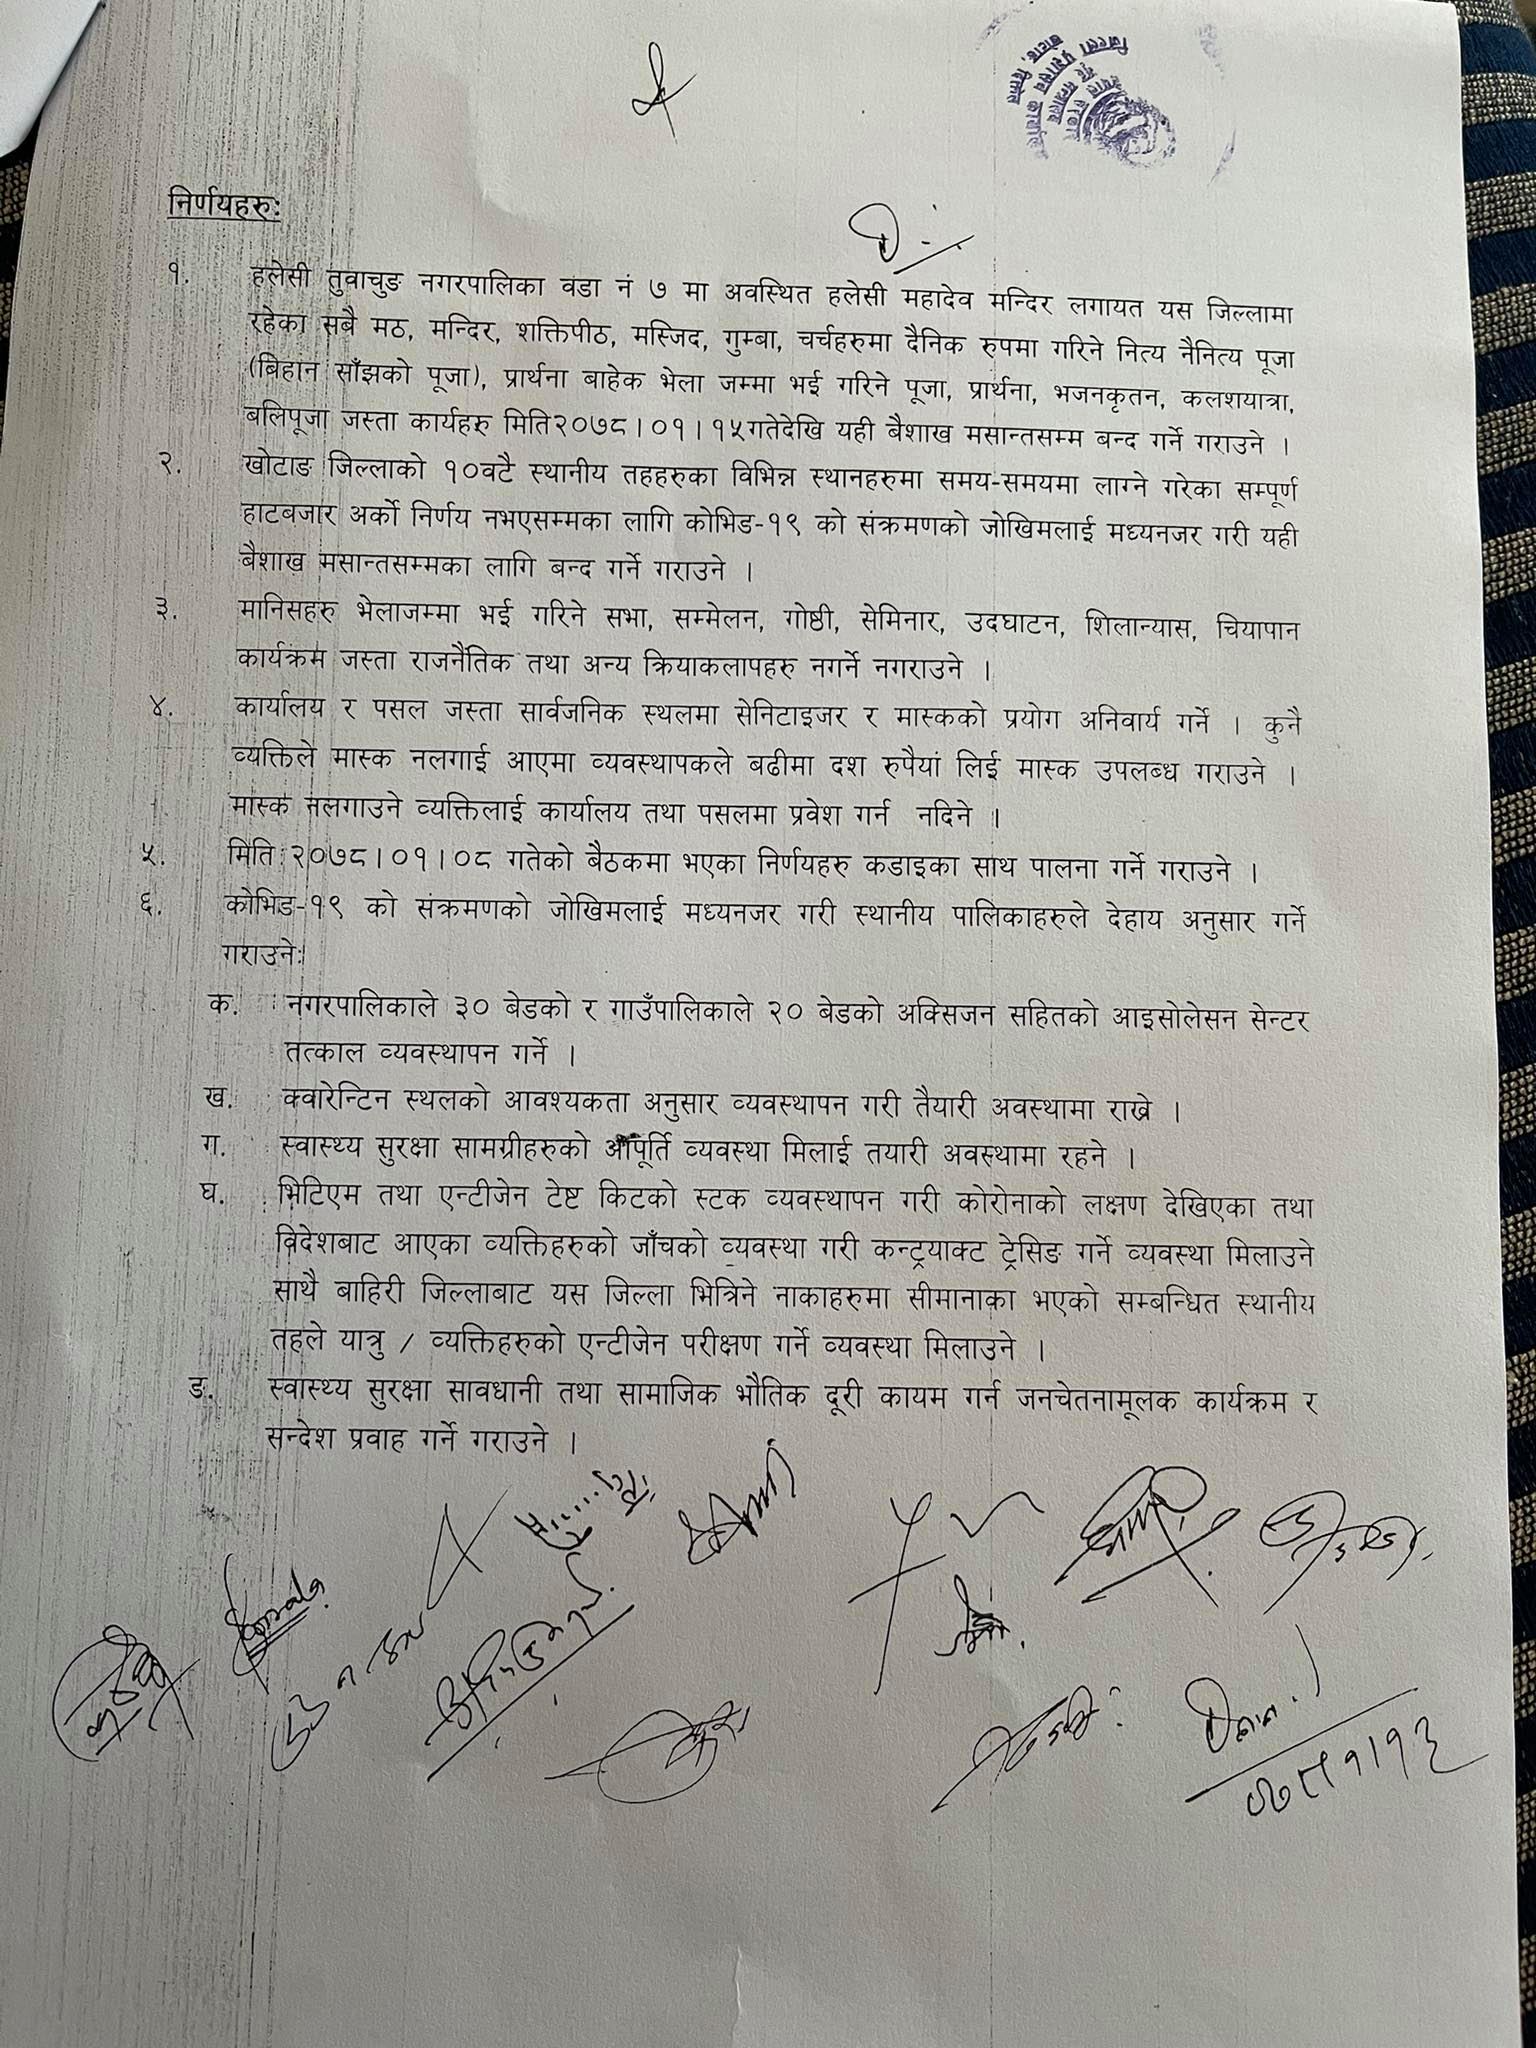 नेपाल सरकार
गृह मन्त्रालय
जिल्ला प्रशासन कार्यालय
खोटाङ, दिक्तेल
निर्णयहरुः
१. हलेसी तुवाचुङ नगरपालिका वडा नं ७ मा अवस्थित हलेसी महादेव मन्दिर लगायत यस जिल्लामा
रहेका सबै मठ, मन्दिर, शक्तिपीठ, मस्जिद, गुम्बा, चर्चहरुमा दैनिक रुपमा गरिने नित्य नैनित्य पूजा
(बिहान साँझको पूजा), प्रार्थना बाहेक भेला जम्मा भई गरिने पूजा, प्रार्थना, भजनकृतन, कलशयात्रा,
बलिपूजा जस्ता कार्यहरु मिति२०७८।०१।१५गतेदेखि यही बैशाख मसान्तसम्म बन्द गर्ने गराउने ।
२. खोटाङ जिल्लाको १०वटै स्थानीय तहहरुका विभिन्न स्थानहरुमा समय-समयमा लाग्ने गरेका सम्पूर्ण
हाटबजार अर्को निर्णय नभएसम्मका लागि कोभिड-१९ को संक्रमणको जोखिमलाई मध्यनजर गरी यही
बैशाख मसान्तसम्मका लागि बन्द गर्ने गराउने ।
३. मानिसहरु भेलाजम्मा भई गरिने सभा, सम्मेलन, गोष्ठी, सेमिनार, उदघाटन, शिलान्यास, चियापान
कार्यक्रम जस्ता राजनैतिक तथा अन्य क्रियाकलापहरु नगर्ने नगराउने ।
४. कार्यालय र पसल जस्ता सार्वजनिक स्थलमा सेनिटाइजर र मास्कको प्रयोग अनिवार्य गर्ने । कुनै
व्यक्तिले मास्क नलगाई आएमा व्यवस्थापकले बढीमा दश रुपैयां लिई मास्क उपलब्ध गराउने ।
मास्क नलगाउने व्यक्तिलाई कार्यालय तथा पसलमा प्रवेश गर्न नदिने ।
५. मिति २०७८।०१।०८ गतेको बैठकमा भएका निर्णयहरु कडाइका साथ पालना गर्ने गराउने ।
६. कोभिड-१९ को संक्रमणको जोखिमलाई मध्यनजर गरी स्थानीय पालिकाहरुले देहाय अनुसार गर्ने
गराउनेः
क. नगरपालिकाले ३० बेडको र गाउँपालिकाले २० बेडको अक्सिजन सहितको आइसोलेसन सेन्टर
तत्काल व्यवस्थापन गर्ने ।
ख. क्वारेन्टिन स्थलको आवश्यकता अनुसार व्यवस्थापन गरी तैयारी अवस्थामा राख्ने ।
ग. स्वास्थ्य सुरक्षा सामग्रीहरुको आपूर्ति व्यवस्था मिलाई तयारी अवस्थामा रहने ।
घ. भिटिएम तथा एन्टीजेन टेष्ट किटको स्टक व्यवस्थापन गरी कोरोनाको लक्षण देखिएका तथा
विदेशबाट आएका व्यक्तिहरुको जाँचको व्यवस्था गरी कन्ट्रयाक्ट ट्रेसिङ गर्ने व्यवस्था मिलाउने
साथै बाहिरी जिल्लाबाट यस जिल्ला भित्रिने नाकाहरुमा सीमानाका भएको सम्बन्धित स्थानीय
तहले यात्रु / व्यक्तिहरुको एन्टीजेन परीक्षण गर्ने व्यवस्था मिलाउने ।
ङ. स्वास्थ्य सुरक्षा सावधानी तथा सामाजिक भौतिक दूरी कायम गर्न जनचेतनामूलक कार्यक्रम र
सन्देश प्रवाह गर्ने गराउने ।